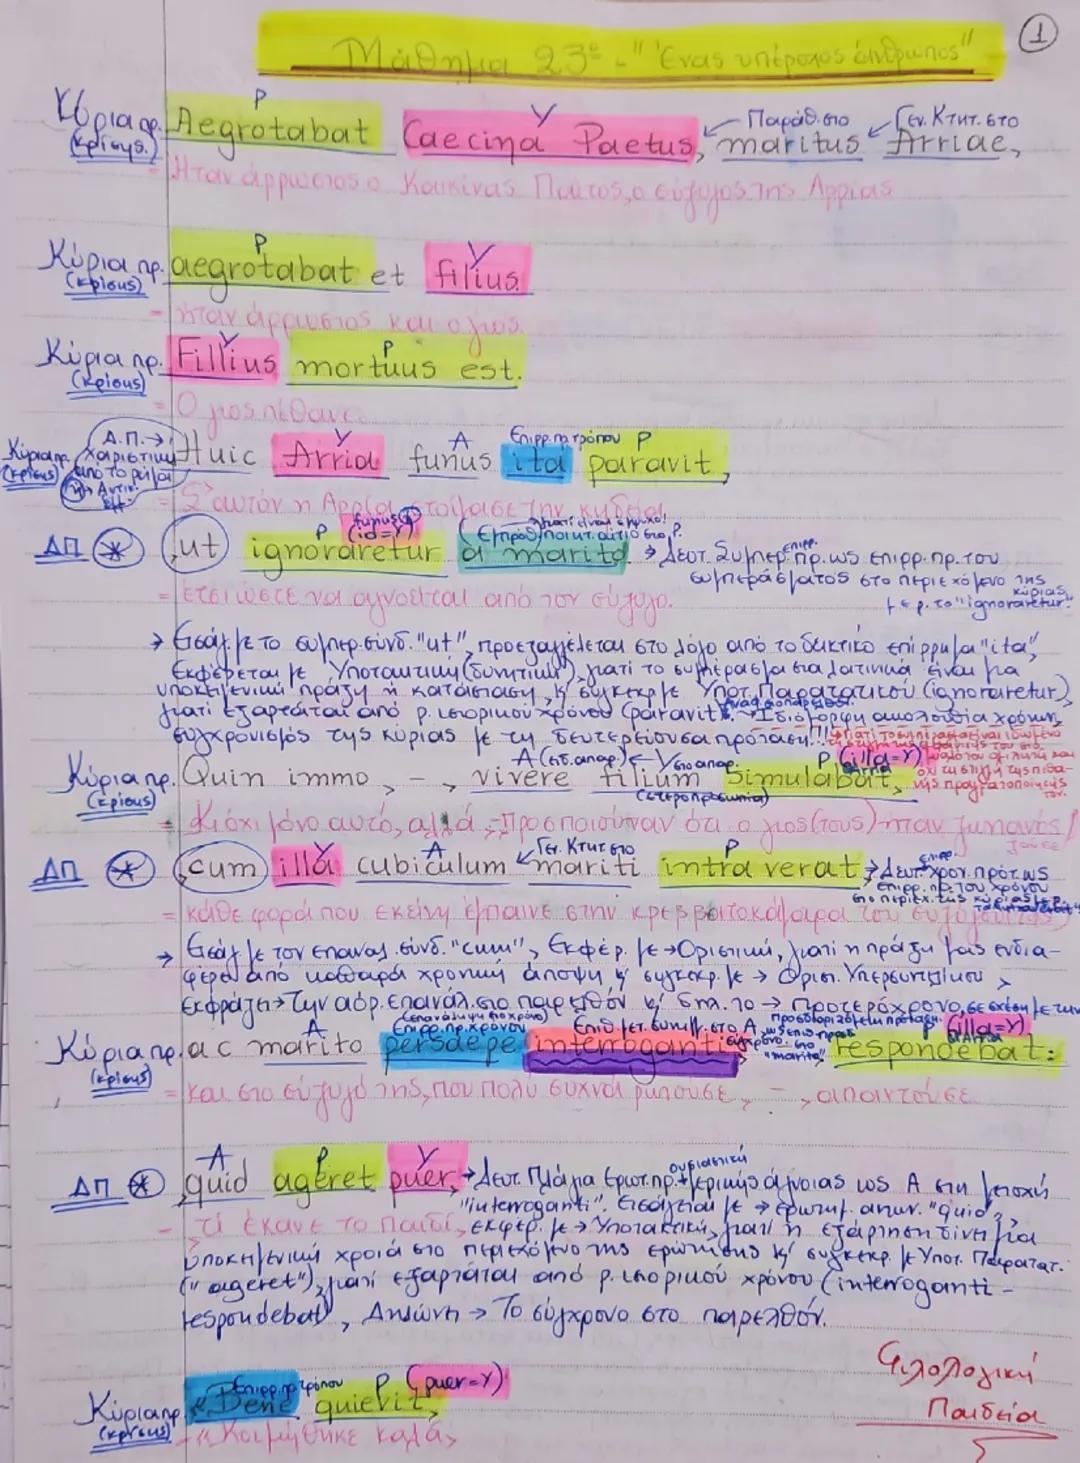 ①
Μάθημα 23º - "Ένας υπέροχος άνθρωπος"
Ρ Υ Παράθ. στο Γεν. Κτητ. στο
Κύρια πρ. Aegrotabat Caecina Paetus, maritus Arriae,
(κρίσης)
= Ήταν άρρωστος ο Καικίνας Παίτος, ο σύζυγος της Αρρίας
Ρ Υ
Κύρια πρ. aegrotabat et filius.
(κρίσης)
- ήταν άρρωστος και ο γιος.
Υ Ρ
Κύρια πρ. Fillius mortuus est.
(κρίσης)
= Ο γιος πέθανε.
Α.Π.→ Υ Α Επιρρ. πρ. τρόπου Ρ
Κύρια πρ. χαριστική Huic Arria funus ita paravit,
(κρίσης) από το ρήμα
ή → Αντικ.
= Σ' αυτόν η Αρρία ετοίμασε την κηδεία
funus
Ρ (id=Υ) Εμπρόθ. ποιητ. αίτιο στο ρ.
ΔΠ * ut ignoraretur a marito → Δευτ. Συμπερ. πρ. ως επιρρ. πρ. του
συμπεράσματος στο περιεχόμενο της
κύριας
με ρ. το "ignoraretur".
= έτσι ώστε να αγνοείται από τον σύζυγο.
→ Εισάγ. με το συμπερ. σύνδ. "ut", προεξαγγέλεται στο λόγο από το δεικτικό επίρρημα "ita",
Εκφέρεται με Υποτακτική (δυνητική), γιατί το συμπέρασμα στα λατινικά είναι μια
υποκειμενική πράξη ή κατάσταση, κ' συγκεκρ. με Υποτ. Παρατατικού (ignoraretur)
γιατί εξαρτάται από ρ. ιστορικού χρόνου (paravit). → Ιδιόμορφη ακολουθία χρόνων,
συγχρονισμός της κύριας με τη δευτερεύουσα πρόταση!!!
Α (ειδ. απαρ.) ← Υ στο απαρ. Ρ (illa=Υ)
Κύρια πρ. Quin immo, -, vivere filium simulabat,
(κρίσης) (ετεροπροσωπία)
= Κι όχι μόνο αυτό, αλλά, - προσποιούνταν ότι ο γιος (τους) ήταν ζωντανός /
ζούσε
Υ Α Γεν. Κτητ. στο Ρ
ΔΠ * cum illa cubiculum mariti intra verat → Δευτ. χρον. πρότ. ως
επιρρ. πρ. του χρόνου
= κάθε φορά που εκείνη έμπαινε στην κρεββατοκάμαρα του συζύγου της
→ Εισάγ. με τον επαναλ. σύνδ. "cum", Εκφέρ. με → Οριστική, γιατί η πράξη μας ενδια-
φέρει από καθαρά χρονική άποψη κ' συγκεκρ. με → Οριστ. Υπερσυντελίκου >
Εκφράζει → Την αόρ. επανάλ. στο παρελθόν κ' δηλ. το → Προτερόχρονο, σε σχέση με την
Α Επιρρ. πρ. χρόνου (illa=Υ)
Κύρια πρ. ac marito persaepe interroganti respondebat:
(κρίσης)
= και στο σύζυγό της, που πολύ συχνά ρωτούσε, -, απαντούσε
Α Ρ Υ ουσιαστική
ΔΠ * quid ageret puer, → Δευτ. Πλάγια Ερωτ. πρ. μερικής άγνοιας ως Α στη μετοχή
"interroganti". Εισάγεται με → ερωτημ. αντων. "quid",
- τι έκανε το παιδί, εκφέρ. με → Υποτακτική, γιατί η εξάρτηση δίνει μια
υποκειμενική χροιά στο περιεχόμενο της ερώτησης κ' συγκεκρ. με Υποτ. Παρατατ.
("ageret"), γιατί εξαρτάται από ρ. ιστορικού χρόνου (interroganti -
respondebat), Δηλώνει → Το σύγχρονο στο παρελθόν.
Επιρρ. πρ. τρόπου Ρ (puer=Υ)
Κύρια πρ. «Bene quievit,
(κρίσης)
- «Κοιμήθηκε καλά,
Φιλολογική
Παιδεία